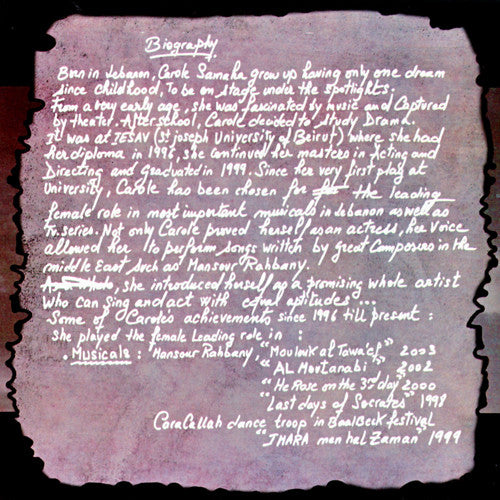 Biography
Born in Lebanon, Carole Samaha grow up having only one dream
since childhood, To be on stage under the spotlights.
From a very early age, she was fascinated by music and Captured
by theater. After school, Carole decided to study Drama.
It was at IESAV (St Joseph University of Beirut) where she had
her diploma in 1996, she continued her masters in Acting and
Directing and graduated in 1999. Since her very first play at
University, Carole has been chosen for the leading
female role in most important musicals in Lebanon as well as
Tv. series. Not only Carole proved herself as an actress, her Voice
allowed her to perform songs written by great Composers in the
middle East such as Mansour Rahbany.
, she introduced herself as a promising whole artist
who can sing and act with equal aptitudes ...
Some of Carole's achievements since 1996 till present :
she played the female Leading role in :
. Musicals : Mansour Rahbany, "Moulouk al Tawa'ef" 2003
"AL Moutanabi" 2002
"He Rose on the 3rd day" 2000
"Last days of Socrates" 1998
CaraCallah dance troop in BaalBeck festival
"IHARA men hal Zaman" 1999